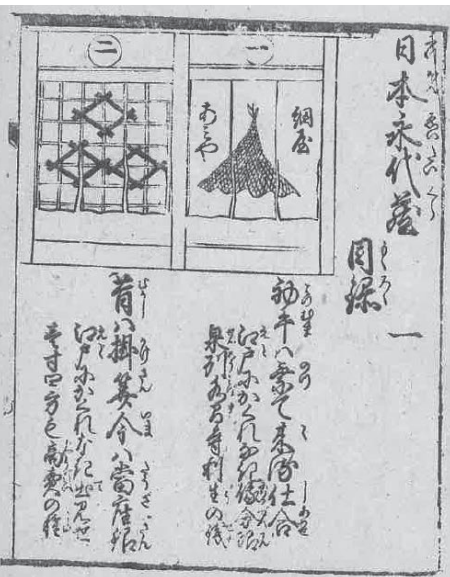 日本永代蔵
目録 一
一
網屋
あみや
初午ハ乗て来る仕合
江戸にかくれなき俄分限
泉州水間寺利生の銭
二
昔ハ掛算今ハ當座銀
江戸にかくれなき出見世
壹寸四方も商賣の種